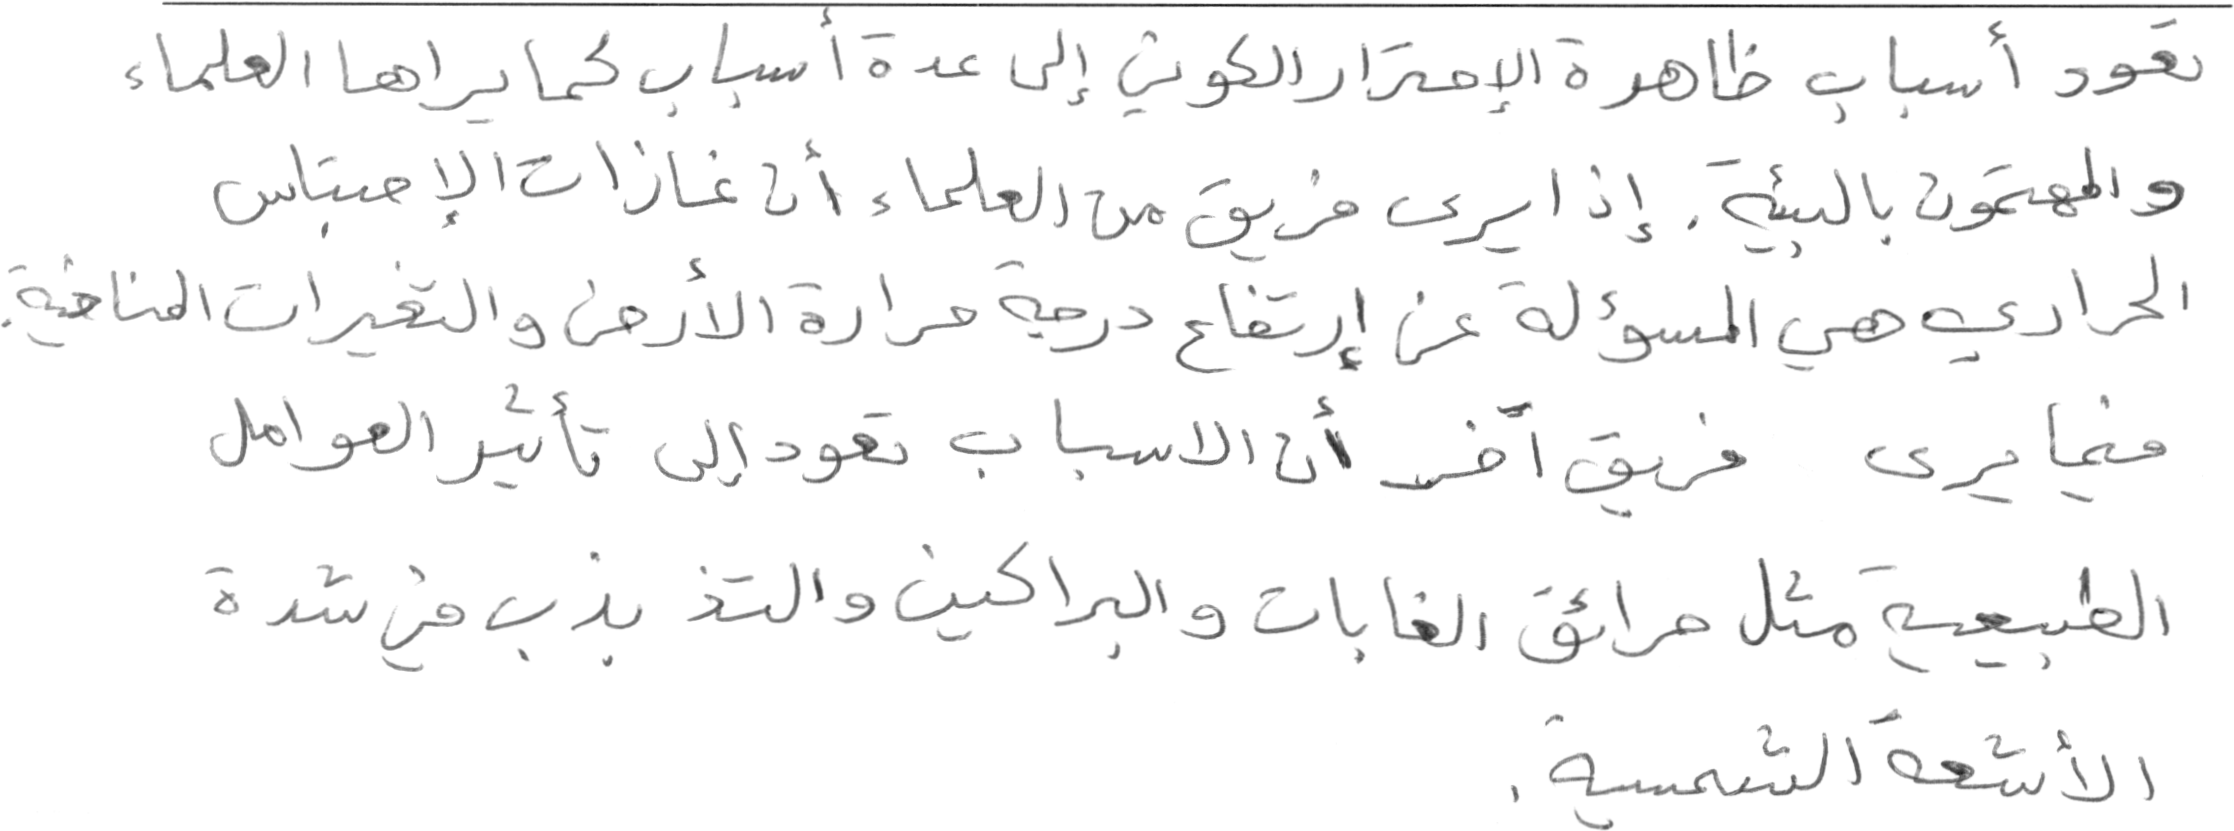 تعود أسباب ظاهرة الإحترار الكوني إلى عدة أسباب كما يراها العلماء
والمهتمون بالبيئة. إذ ايرى فريق من العلماء أن غازات الإحتباس
الحراري هي المسؤلة عن إرتفاع درجة حرارة الأرض والتغيرات المناخية.
فيما يرى فريق آخر أن الاسباب تعود إلى تأثير العوامل
الطبيعية مثل حرائق الغابات والبراكين والتذبذب في شدة
الأشعة الشمسية.